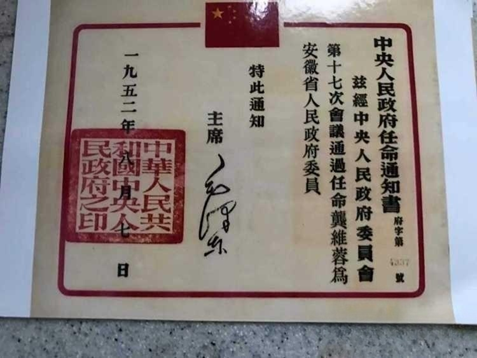 中央人民政府任命通知書
府字第4337號
茲經中央人民政府委員會
第十七次會議通過任命龔維蓉爲
安徽省人民政府委員
特此通知
主席 毛澤東
一九五二年八月七日
中華人民共
和國中央人
民政府之印